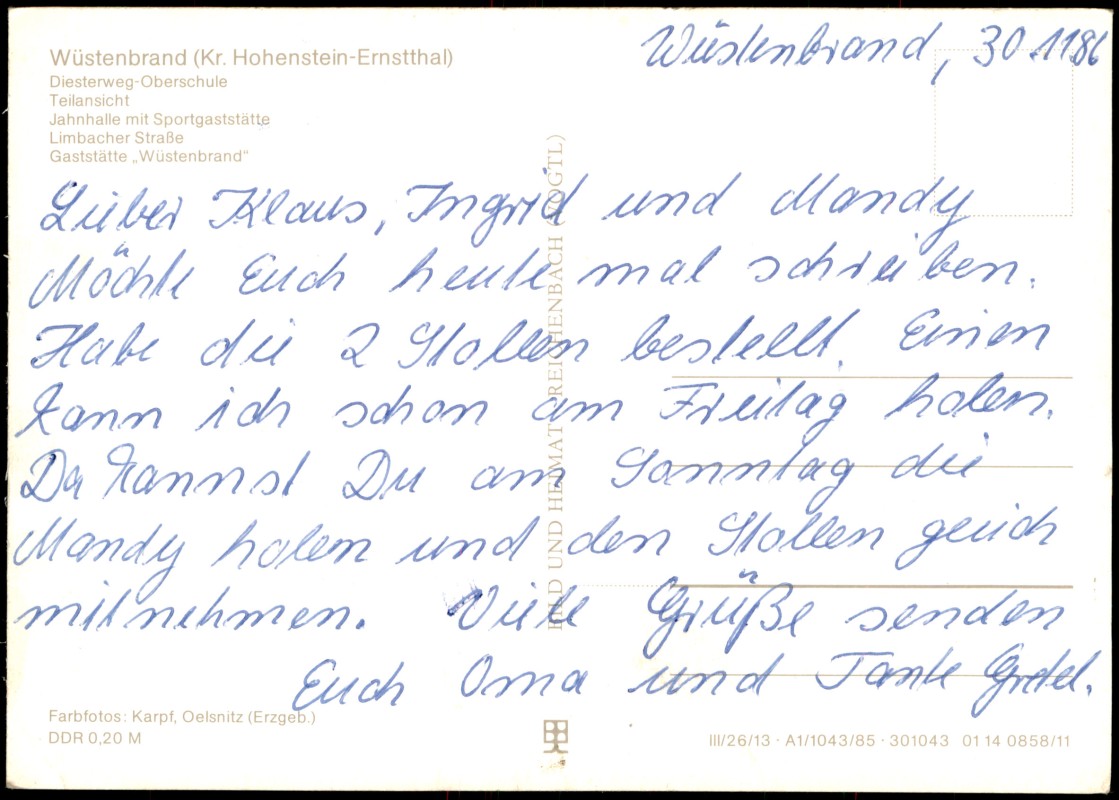 Wüstenbrand, 30.11.86
Wüstenbrand (Kr. Hohenstein-Ernstthal)
Diesterweg-Oberschule
Teilansicht
Jahnhalle mit Sportgaststätte
Limbacher Straße
Gaststätte „Wüstenbrand“
Lieber Klaus, Ingrid und Mandy
Möchte Euch heute mal schreiben.
Habe die 2 Stollen bestellt. Einen
kann ich schon am Freitag holen.
Da kannst Du am Sonntag die
Mandy holen und den Stollen gleich
mitnehmen. Viele Grüße senden
Euch Oma und Tante Gretel.
BILD UND HEIMAT REICHENBACH (VOGTL)
Farbfotos: Karpf, Oelsnitz (Erzgeb.)
DDR 0,20 M
III/26/13 · A1/1043/85 · 301043 01 14 0858/11